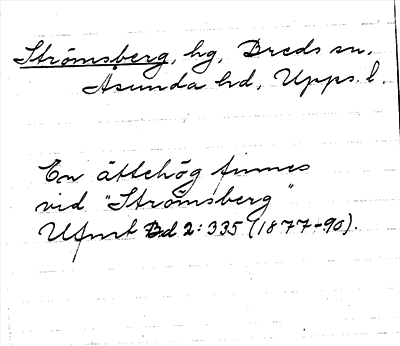 Strömsberg, hg, Breds sn,
Åsunda hd, Upps. l.
En ättehög finnes
vid "Strömsberg"
Ufmt Bd 2:335 (1877-90).